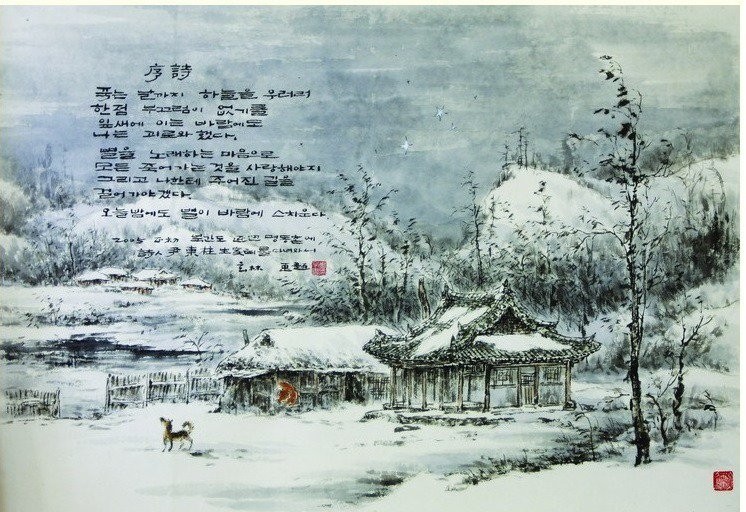 序詩
죽는 날까지 하늘을 우러러
한점 부끄럼이 없기를
잎새에 이는 바람에도
나는 괴로와 했다.
별을 노래하는 마음으로
모든 죽어가는 것을 사랑해야지
그리고 나한테 주어진 길을
걸어가야겠다.
오늘밤에도 별이 바람에 스치운다
북간도 명동촌에
詩人 尹東柱 生家를